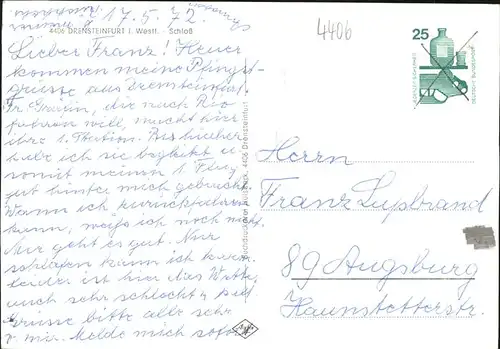 17.5.72.
4406 DRENSTEINFURT i. Westf. - Schloß
4406
25
Lieber Franz! Heuer
kommen meine Pfingst-
grüsse aus Drensteinfurt.
Fr. die nach Rio
fahren will, macht hier
ihre 1. Station. Bis hierher
habe ich sie begleitet u.
somit meinen 1. Flug
gut hinter mich gebracht.
Wann ich zurückfahren
kann, weiß ich noch nicht.
Mir geht es gut. Nur
schlafen kann ich kaum
leider ist hier das Wetter
auch sehr schlecht u.
Grüsse bitte alle sehr
v. mir. Melde mich sofort
4406 Drensteinfurt
DEUTSCHE BUNDESPOST
Herrn
Franz Lupbrand
89 Augsburg
Haunstetterstr.